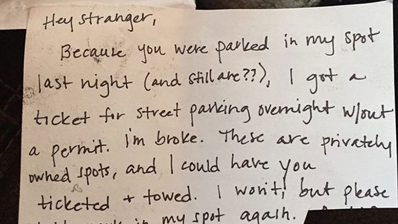 Hey stranger,
Because you were parked in my spot
last night (and still are??), I got a
ticket for street parking overnight w/out
a permit. I'm broke. These are privately
owned spots, and I could have you
ticketed + towed. I won't, but please
in my spot again.